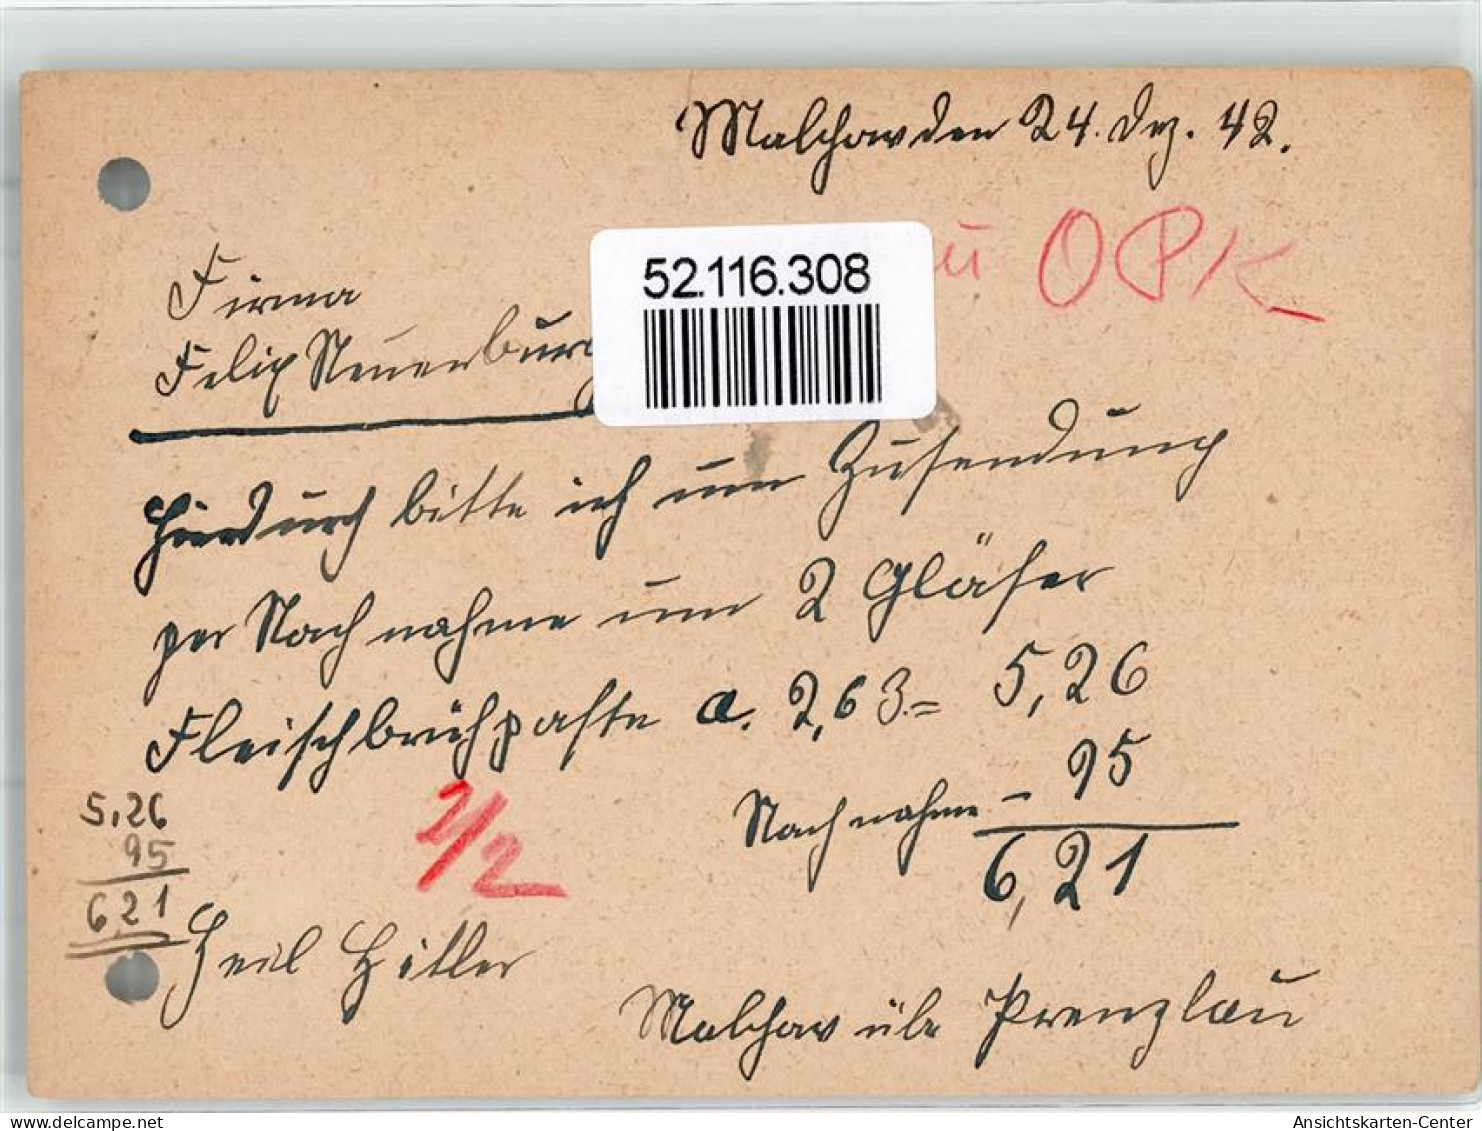 Malchow den 24. Dez. 42.
ü OPK
52.116.308
Firma
Felix Neuenburg
Hierdurch bitte ich um Zusendung
per Nachnahme um 2 Gläser
Fleischbrühpaste a. 2,63.= 5,26
Nachnahme - 95
6,21
5,26
95
6,21
1/2
Heil Hitler
Malchow üb. Prenzlau
Ansichtskarten-Center